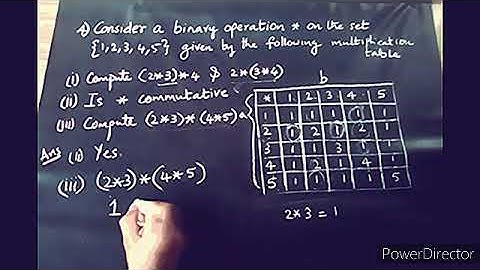 4) Consider a binary operation * on the set
{1,2,3,4,5} given by the following multiplication
table
(i) Compute (2*3)*4 & 2*(3*4)
(ii) Is * commutative
(iii) Compute (2*3)*(4*5)
b
a
* 1 2 3 4 5
1 1 1 1 1 1
2 1 2 1 2 1
3 1 1 3 1 1
4 1 2 1 4 1
5 1 1 1 1 5
Ans (ii) Yes.
(iii) (2*3)*(4*5)
1
2*3 = 1
PowerDirector